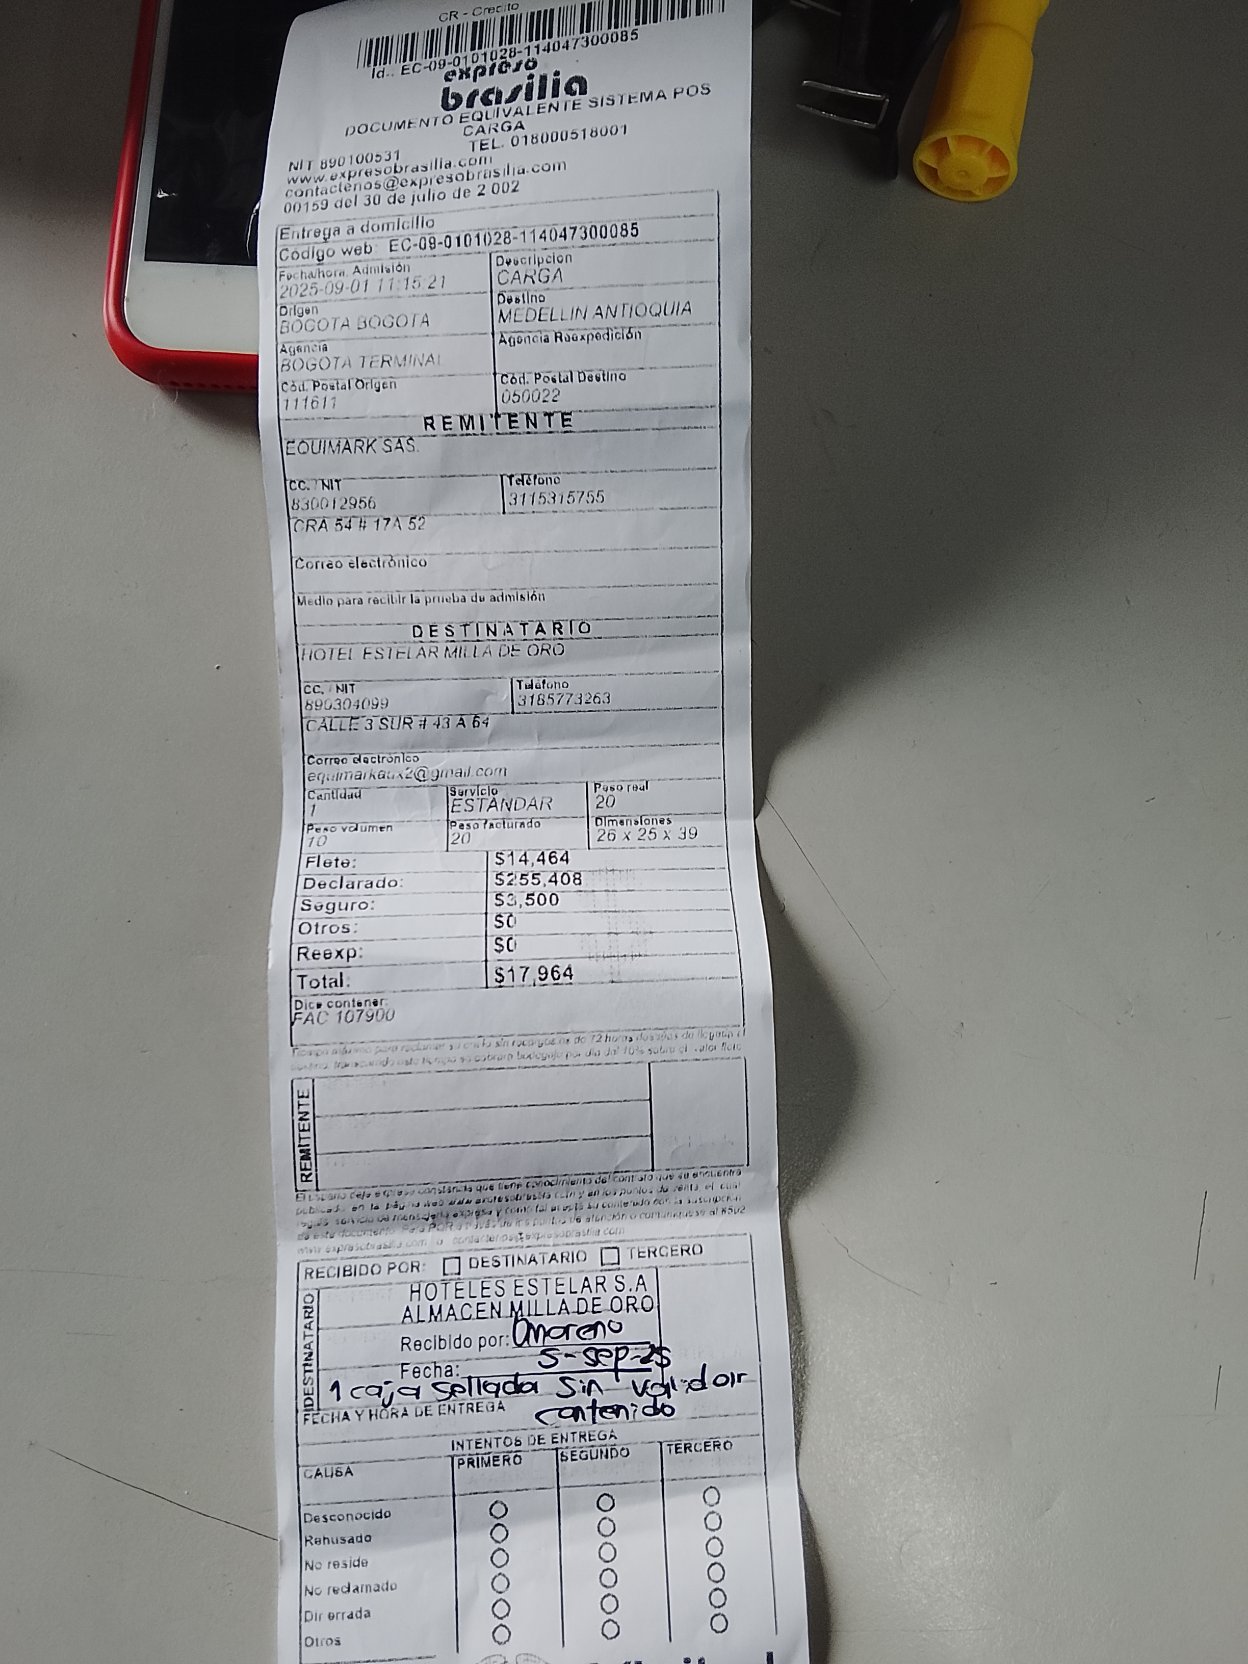 CR - Credito
Id.. EC-09-0101028-114047300085
expreso
brasilia
DOCUMENTO EQUIVALENTE SISTEMA POS
CARGA
TEL. 018000518001
NIT 890100531
www.expresobrasilia.com
contactenos@expresobrasilia.com
00159 del 30 de julio de 2 002
Entrega a domicilio
Código web: EC-09-0101028-114047300085
Fecha/hora. Admisión
2025-09-01 11:15:21
Descripcion
CARGA
Origen
BOGOTA BOGOTA
Destino
MEDELLIN ANTIOQUIA
Agencia
BOGOTA TERMINAL
Agencia Reexpedición
Cód. Postal Origen
111611
Cód. Postal Destino
050022
REMITENTE
EQUIMARK SAS.
CC. / NIT
830012956
Teléfono
3115315755
CRA 54 # 17A 52
Correo electrónico
Medio para recibir la prueba de admisión
DESTINATARIO
HOTEL ESTELAR MILLA DE ORO
CC. / NIT
890304099
Teléfono
3185773263
CALLE 3 SUR # 43 A 64
Correo electrónico
equimarkaux2@gmail.com
Cantidad
1
Servicio
ESTANDAR
Peso real
20
Peso volumen
10
Peso facturado
20
Dimensiones
26 x 25 x 39
Flete: $14,464
Declarado: $255,408
Seguro: $3,500
Otros: $0
Reexp: $0
Total: $17,964
Dice contener:
FAC 107900
REMITENTE
RECIBIDO POR: DESTINATARIO TERCERO
DESTINATARIO
HOTELES ESTELAR S.A
ALMACEN MILLA DE ORO
Recibido por: Omoreno
Fecha: 5-sep-25
1 caja sellada sin validar
contenido
FECHA Y HORA DE ENTREGA
INTENTOS DE ENTREGA
CAUSA PRIMERO SEGUNDO TERCERO
Desconocido
Rehusado
No reside
No reclamado
Dir errada
Otros